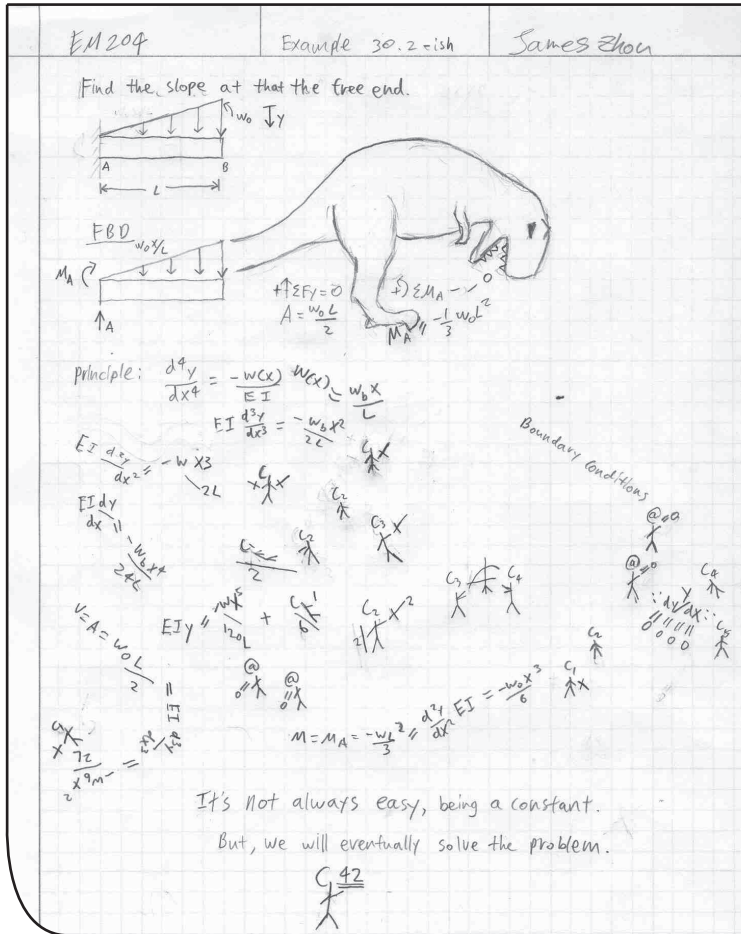 EM204
Example 30.2-ish
James Zhou
Find the slope at that the free end.
w₀ ↓y
A B
L
FBD
w₀x/L
M_A
A
+↑ΣFy=0
A = w₀L/2
+) ΣM_A -- 0
M_A = -1/3 w₀L²
principle: d⁴y/dx⁴ = -w(x)/EI w(x) = w_b x/L
EI d³y/dx³ = -w_b x²/2L C₁
EI d²y/dx² = -w x3/2L C₁ x C₂
EI dy/dx = -w_b x⁴/24L
2 C₂ C₃ x
EI y = -wx⁵/120L + C₁/6 C₂/2 x² C₃ C₄
Boundary conditions
@=0
@=0
dy/dx y
0 0 0 0
C₄
C₃
v = A = w₀L/2 = EI d³y/dx³ =
@ 0
@ 0
M = M_A = -wL²/3 = d²y/dx² EI = -w₀x³/6 C₁x C₂
It's not always easy, being a constant.
But, we will eventually solve the problem.
C 42